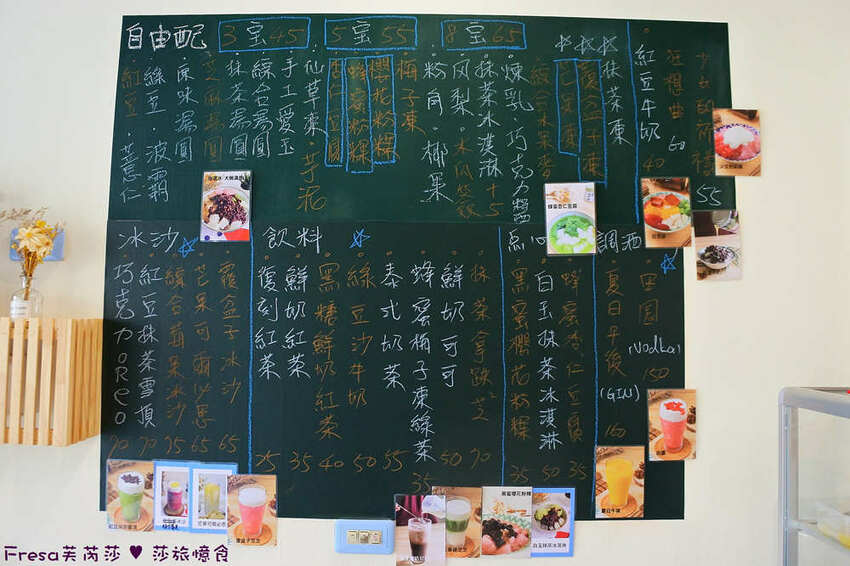 自由配
3寶45
5寶55
8寶65
紅豆
薏仁
綠豆
波霸
原味湯圓
芝麻湯圓
抹茶湯圓
綜合湯圓
手工愛玉
仙草凍
芋泥
杏仁豆腐
蜂蜜粉粿
櫻花粉粿
梅子凍
粉角
椰果
鳳梨
抹茶冰淇淋+5
煉乳
巧克力醬
芒果凍
覆盆子凍
抹茶凍
紅豆牛奶
40
狂想曲
60
55
冰沙
巧克力OREO
70
紅豆抹茶雪頂
70
綜合蘋果冰沙
75
芒果可爾必思
65
覆盆子冰沙
65
飲料
復刻紅茶
25
鮮奶紅茶
35
黑糖鮮奶紅茶
40
綠豆沙牛奶
50
泰式奶茶
55
蜂蜜梅子凍綠茶
35
鮮奶可可
50
抹茶拿鐵
70
點心
黑蜜櫻花粉粿
35
白玉抹茶冰淇淋
50
蜂蜜杏仁豆腐
35
調酒
夏日午後
(GIN)
160
田園
(Vodka)
150
Fresa芙芮莎 ♥ 莎旅憶食